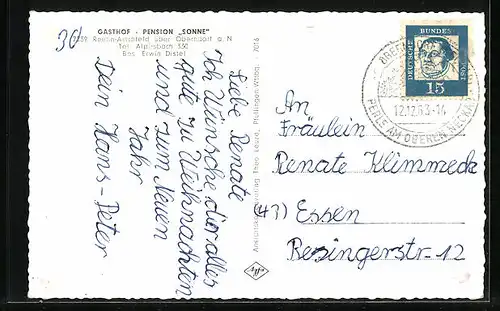 30
GASTHOF · PENSION „SONNE"
über Oberndorf a. N
Tel. Alpirsbach 550
Bes. Erwin Distel
Liebe Renate
Ich Wünsche dir alles
gute zu Weihnachten
und zum Neuen
Jahr
Dein Hans-Peter
7016
DEUTSCHE BUNDESPOST
15
12.12.63-14
PERLE AM OBEREN NECKAR
An
Fräulein
Renate Klimmeck
(43) Essen
Resingerstr-12